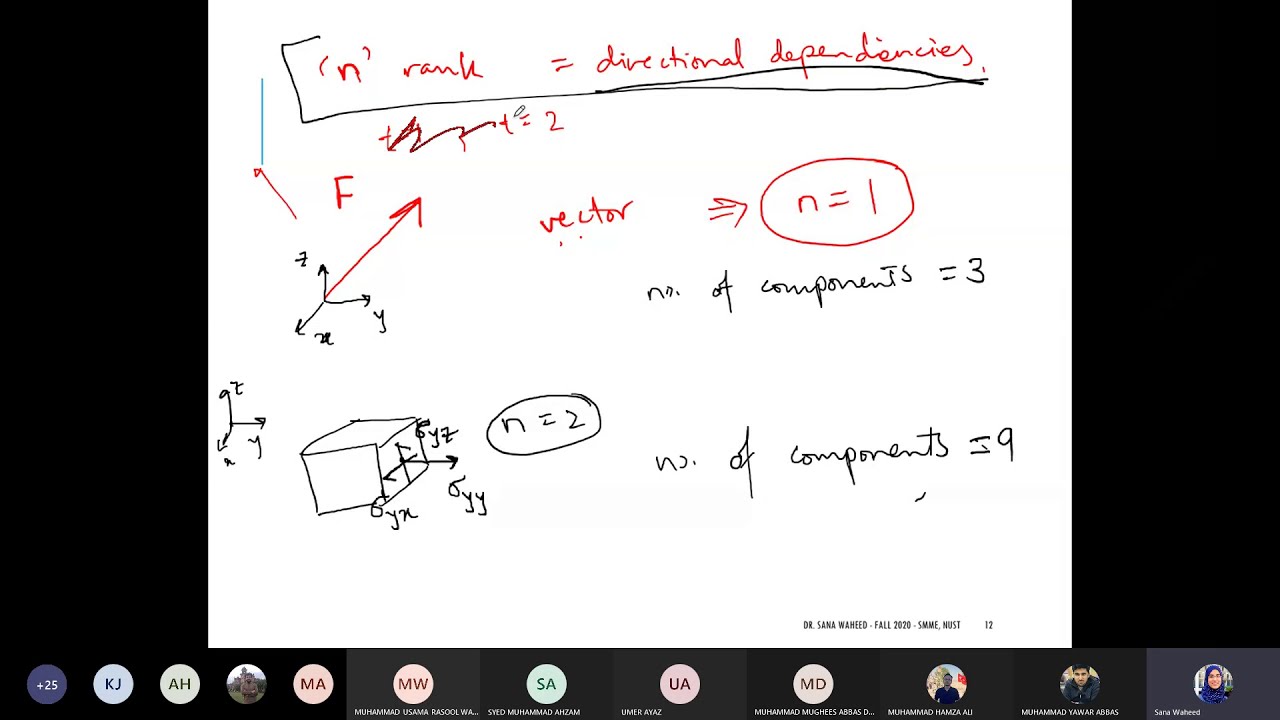 'n' rank = directional dependiencies.
t = 2
F
vector ⇒ n = 1
z
y
x
no. of components = 3
z
y
x
n = 2
σyz
σyy
σyx
no. of components = 9
DR. SANA WAHEED - FALL 2020 - SMME, NUST 12
+25 KJ AH MA MW SA UA MD
MUHAMMAD USAMA RASOOL WA... SYED MUHAMMAD AHZAM UMER AYAZ MUHAMMAD MUGHEES ABBAS D... MUHAMMAD HAMZA ALI MUHAMMAD YAWAR ABBAS Sana Waheed